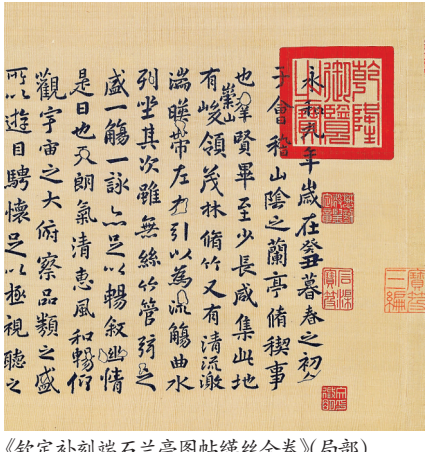 永和九年歲在癸丑暮春之初
于會稽山陰之蘭亭脩稧事
也羣賢畢至少長咸集此地
有崇山峻領茂林脩竹又有清流激
湍暎帶左右引以為流觴曲水
列坐其次雖無絲竹管弦之
盛一觴一詠亦足以暢叙幽情
是日也天朗氣清惠風和暢仰
觀宇宙之大俯察品類之盛
所以遊目騁懷足以極視聽之
乾隆御覽之寶
石渠寶笈
寶笈三編
《钦定补刻端石兰亭图帖缂丝全卷》(局部)